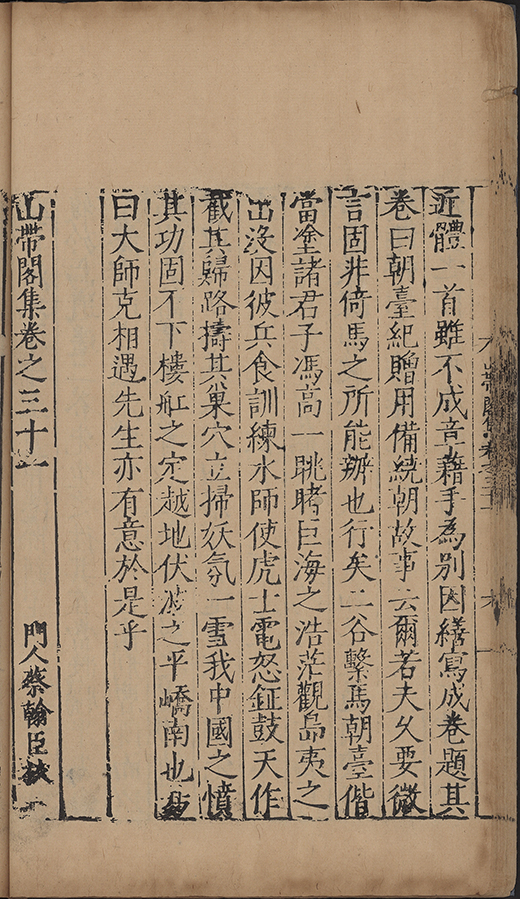 近體一首雖不成音藉手為別因繕寫成卷題其
卷曰朝臺紀贈用備繞朝故事云爾若夫久要微
言固非倚馬之所能辦也行矣二谷繫馬朝臺偕
當塗諸君子馮高一眺睹巨海之浩茫觀島夷之
出沒因彼兵食訓練水師使虎士電怒鉦鼓天作
截其歸路擣其巢穴立掃妖氛一雪我中國之憤
其功固不下樓舡之定越地伏波之平嶠南也易
曰大師克相遇先生亦有意於是乎
山帶閣集卷之三十一
門人蔡翰臣校